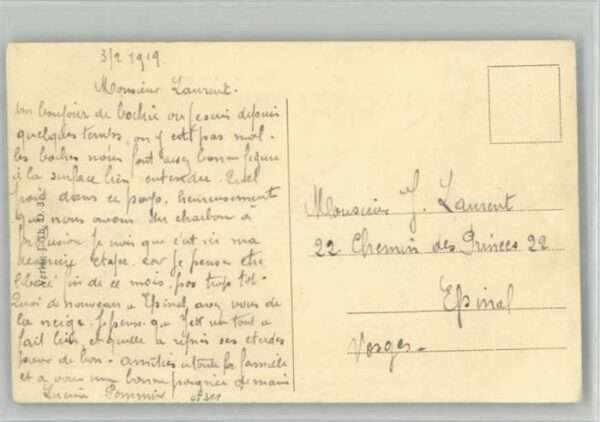 3/2 1919.
Monsieur Laurent.
un bonjour de bochie ou je suis depuis
quelques temps, on y est pas mal.
les boches nous font assez bonne figure
à la surface bien entendu. Quel
froid dans ce pays. heureusement
que nous avons du charbon à
profusion. Je crois que c'est ici ma
dernière étape. car je pense être
libéré fin de ce mois. pas trop tot.
Quoi de nouveau a Epinal, avez vous de
la neige. Je pense que est tout a
fait bien, et qu'elle a repris ses etudes
pour de bon. amitiés a toute la famille
et a vous une bonne poignée de main
Lucien
Monsieur J. Laurent
22 Chemin des Princes 22
Epinal
Vosges.